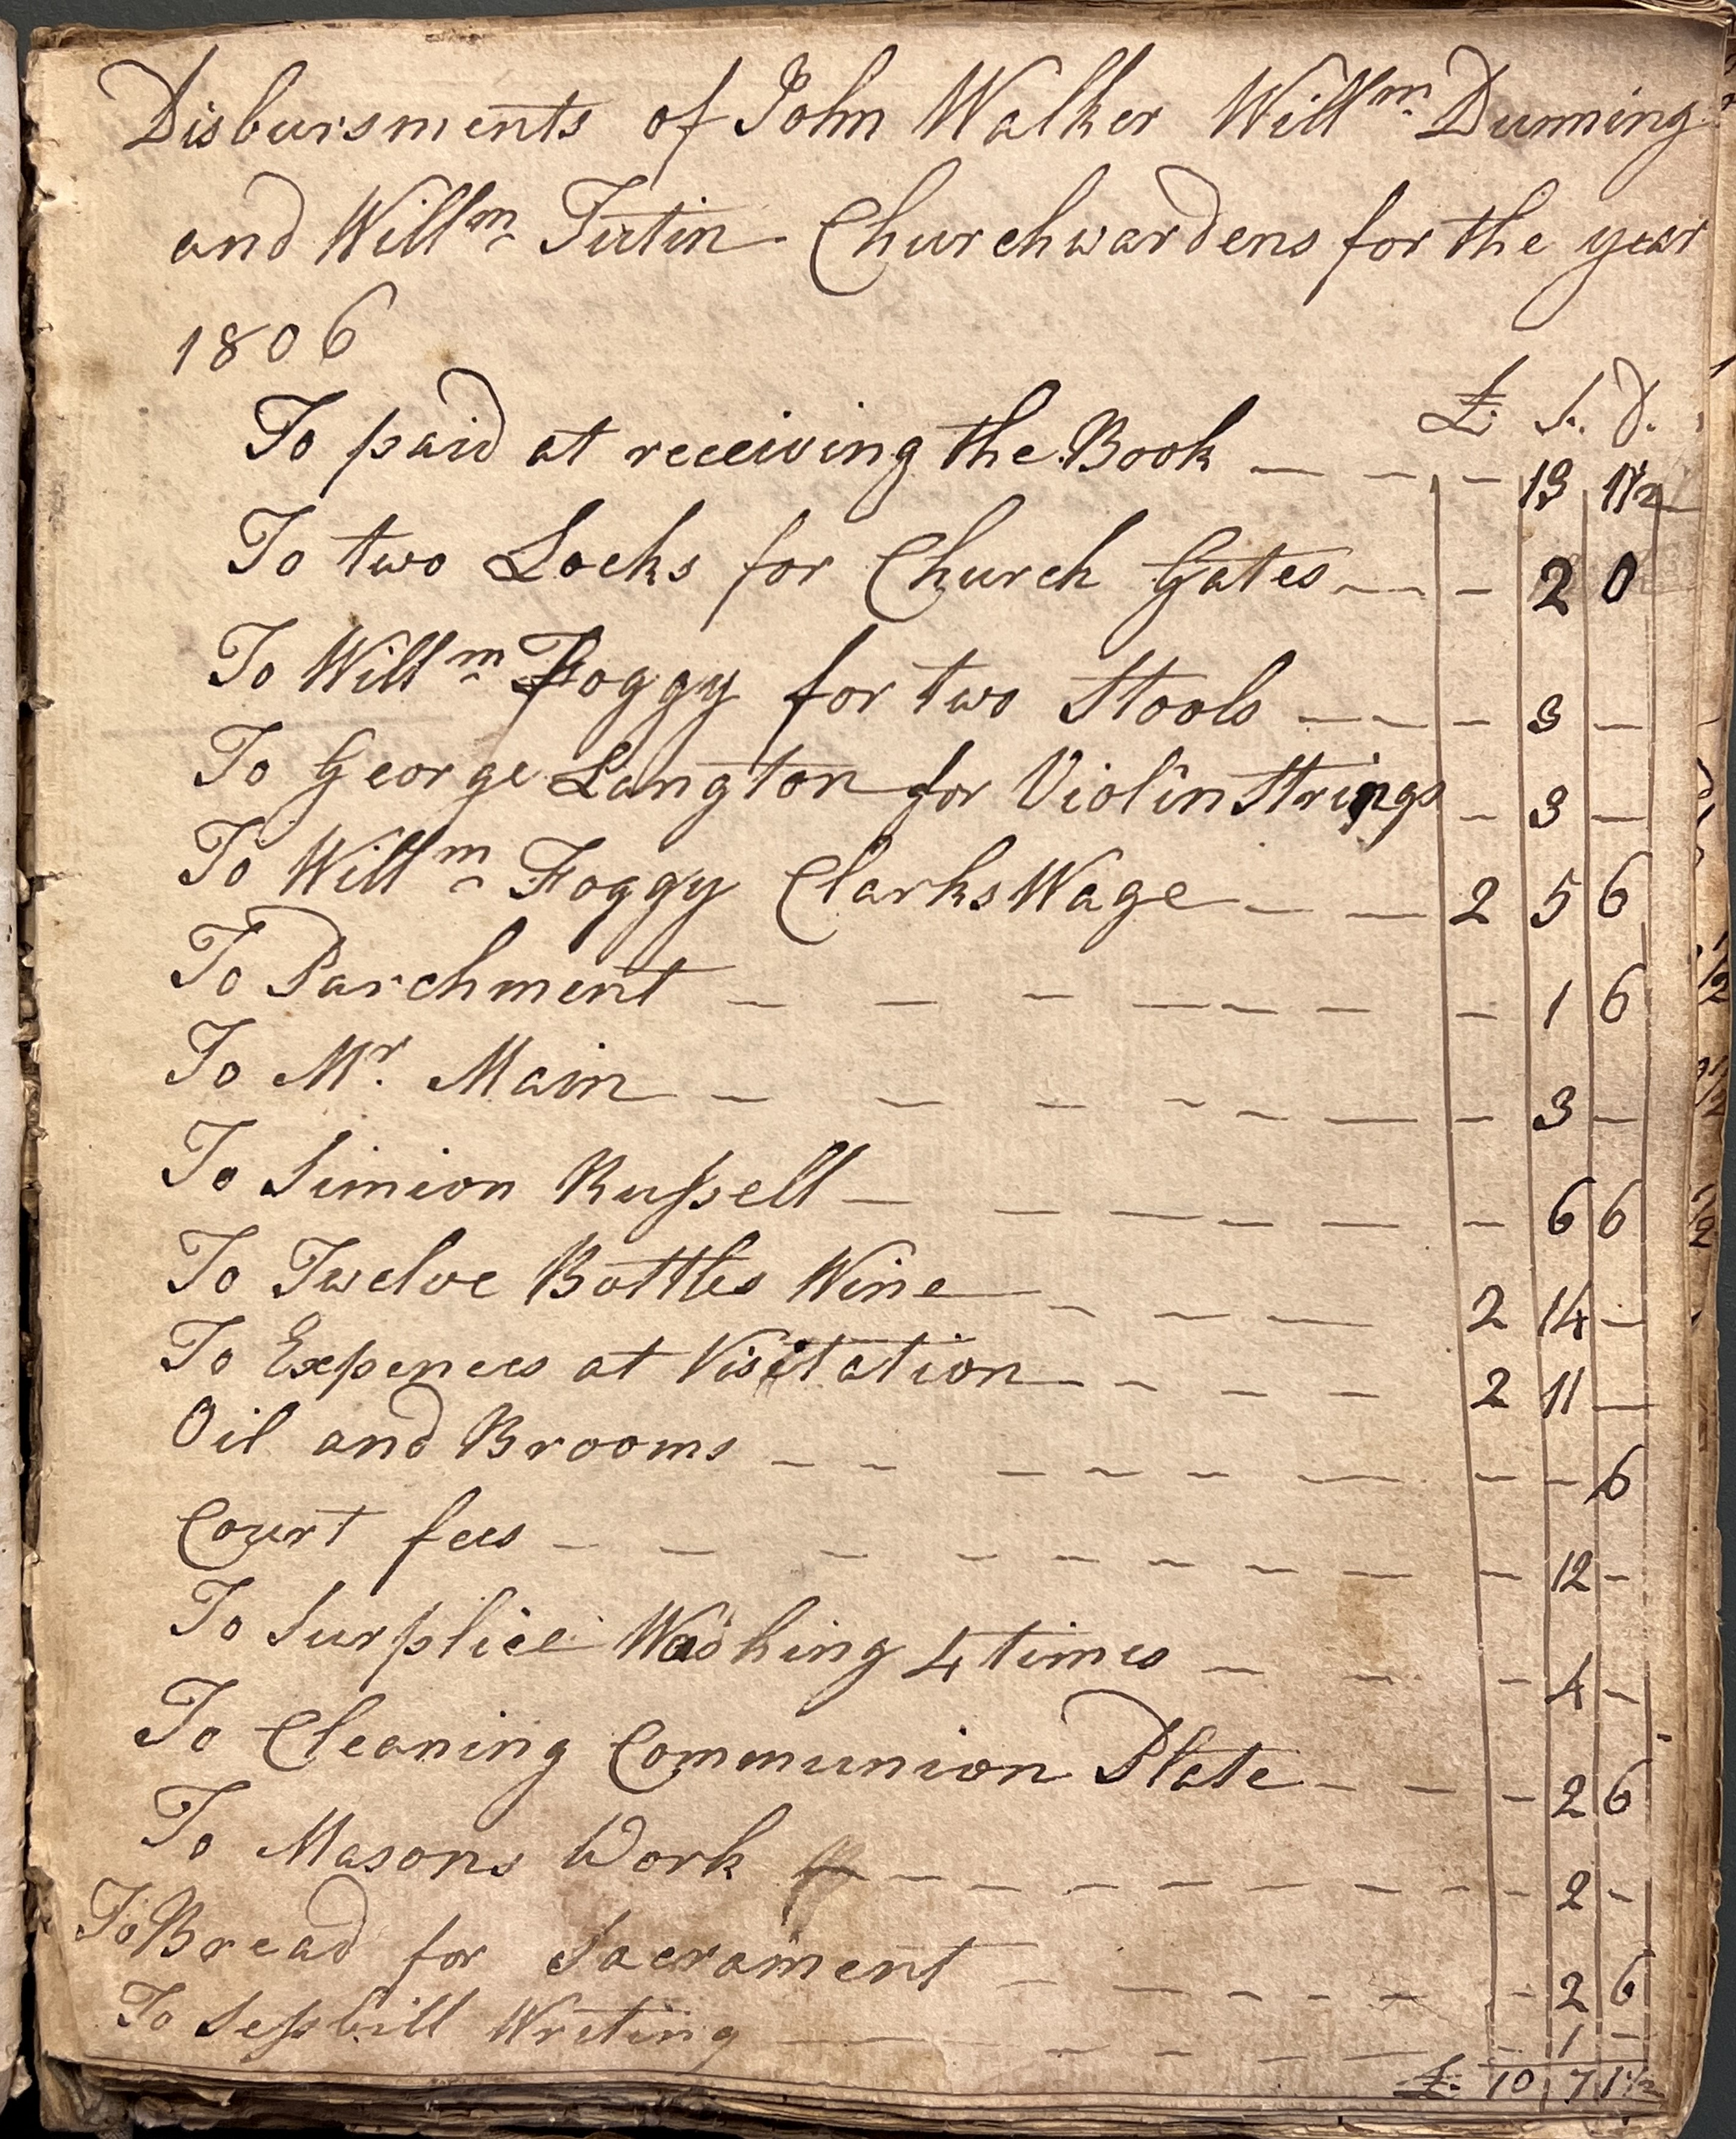 Disbursments of John Walker Willm Dunning
and Willm Tutin Churchwardens for the year
1806
£ S. D.
To paid at receiving the Book — — — — 13 1½
To two Locks for Church Gates — — — 2 0
To Willm Foggy for two Stools — — — 3 —
To George Langton for Violin Strings — 3 —
To Willm Foggy Clarks Wage — — 2 5 6
To Parchment — — — — — — — 1 6
To Mr. Main — — — — — — — 3 —
To Simion Rußell — — — — — — — 6 6
To Twelve Bottles Wine — — — — 2 14 —
To Expences at Visitation — — — — 2 11 —
Oil and Brooms — — — — — — — — — 6
Court fees — — — — — — — — — 12 —
To Surplice Washing 4 times — — — — 4 —
To Cleaning Communion Plate — — — 2 6
To Masons Work — — — — — — — — 2 —
To Bread for Sacrament — — — — — — — 2 6
To Seßbill Writing — — — — — 1 —
£. 10 7 1½